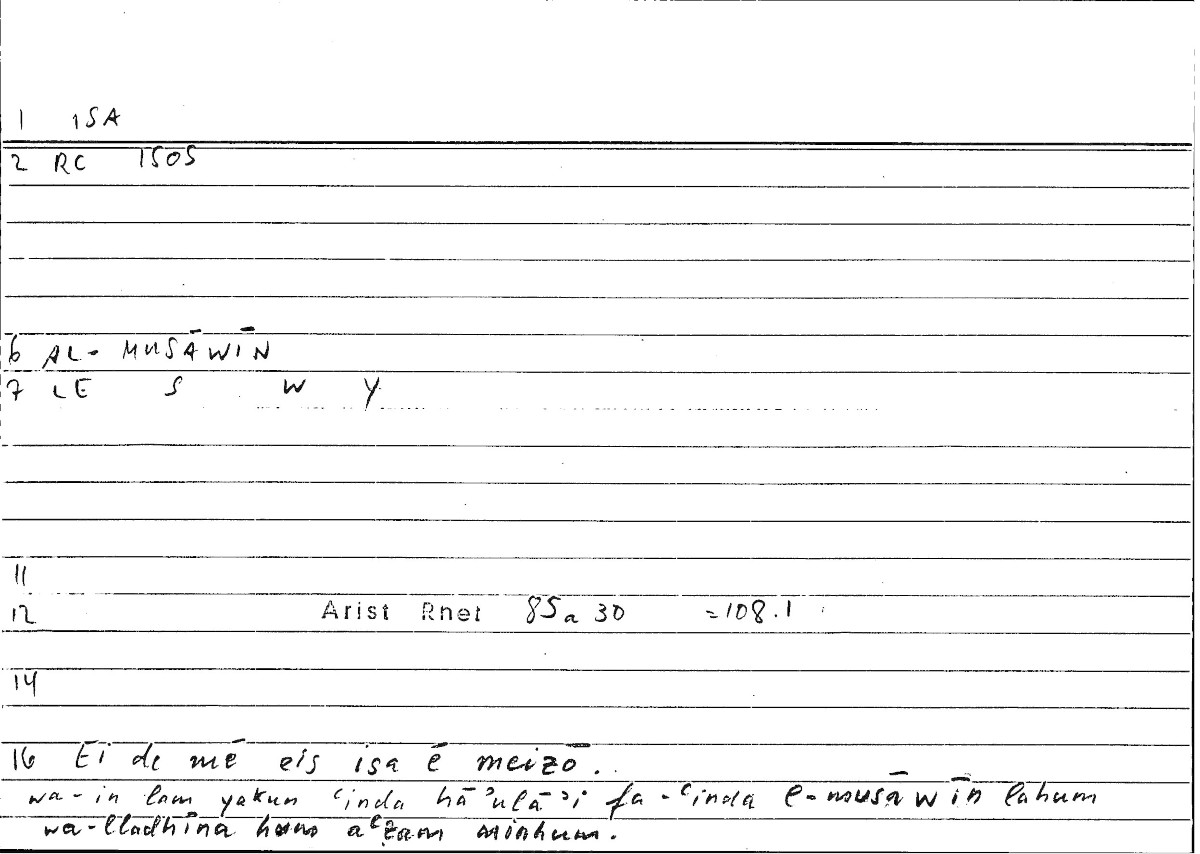 1 ISA
2 RC ISOS
6 AL- MUSĀWĪN
7 LE S W Y
11
12 Arist Rhet 85a 30 =108.1
14
16 Ei de mē eis isa ē meizō.
wa-in lam yakun ʿinda hāʾulāʾi fa-ʿinda l-musāwīn lahum
wa-lladhīna hum aʿẓam minhum.